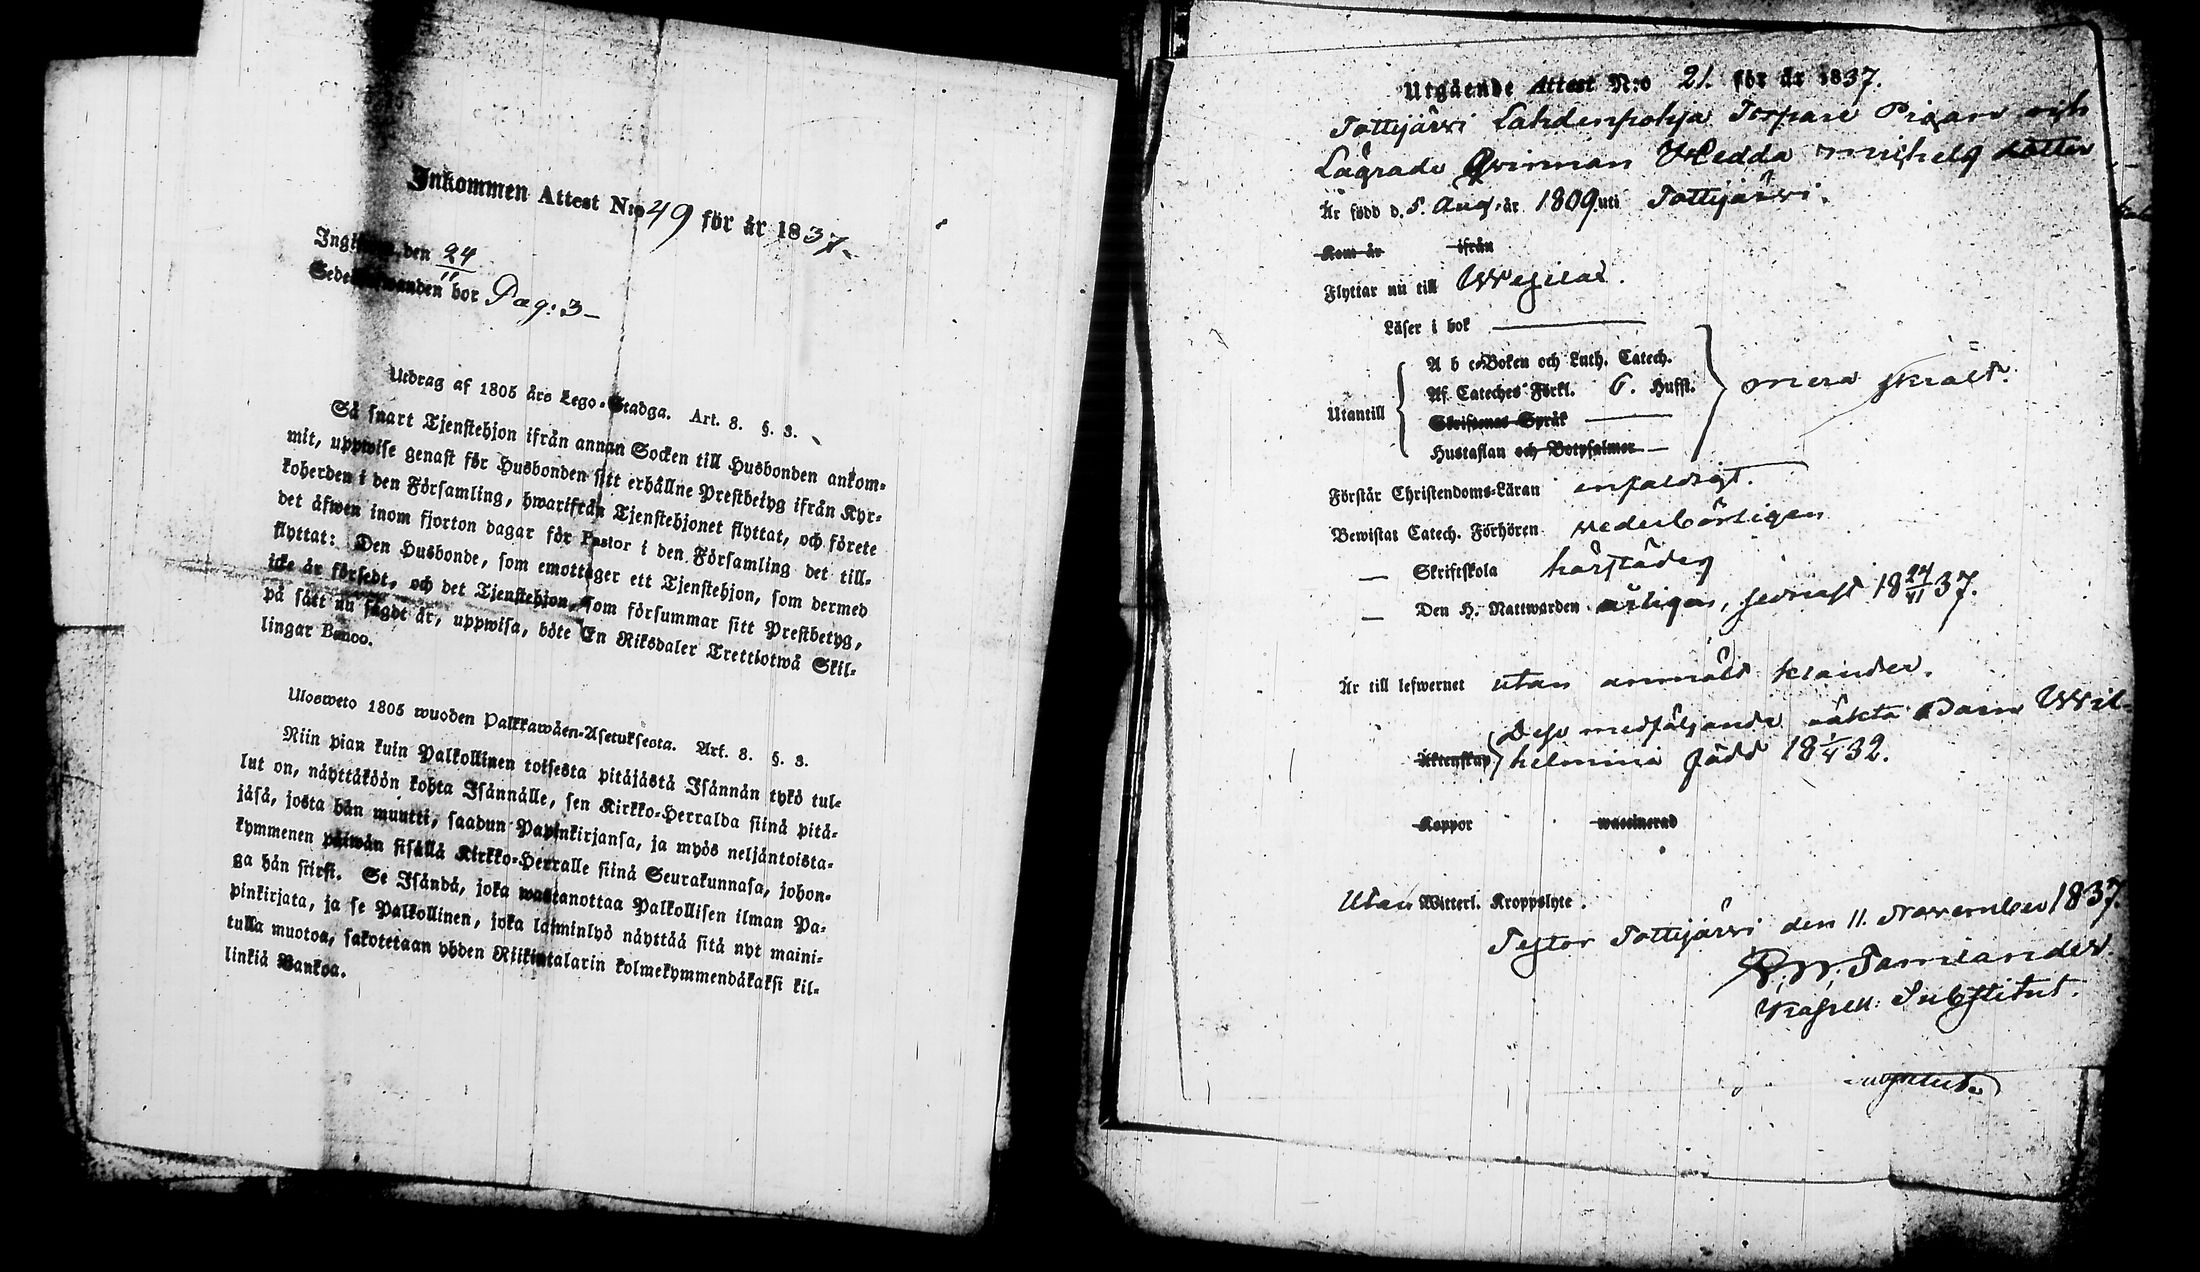 Inkommen Attest N:o 49 för år 1837.
den 24/11
bor Pag: 3
Utdrag af 1805 års Lego-Stadga. Art. 8. §. 3.
Så snart Tjenstehjon ifrån annan Socken till Husbonden ankom-
mit, uppwise genast för Husbonden sitt erhållne Prestbetyg ifrån Kyr-
koherden i den Församling, hwarifrån Tjenstehjonet flyttat, och förete
det äfwen inom fjorton dagar för Pastor i den Församling det till-
flyttat: Den Husbonde, som emottager ett Tjenstehjon, som dermed
icke är försedt, och det Tjenstehjon, som försummar sitt Prestbetyg,
på sätt nu sagdt är, uppwisa, böte En Riksdaler Trettiotwå Skil-
lingar Banco.
Ulosweto 1805 wuoden Palkkawäen-Asetuksesta. Art. 8. §. 3.
Niin pian kuin Palkollinen toisesta pitäjästä Isännän tykö tul-
lut on, näyttäköön kohta Isännälle, sen Kirkko-Herralda siinä pitä-
jäsä, josta hän muutti, saadun Papinkirjansa, ja myös neljäntoista-
kymmenen päiwän sisällä Kirkko-Herralle siinä Seurakunnasa, johon-
ga hän siirsi. Se Isändä, joka wastanottaa Palkollisen ilman Pa-
pinkirjata, ja se Palkollinen, joka laiminlyö näyttää sitä nyt maini-
tulla muotoa, sakotetaan yhden Riikintalarin kolmekymmendäkaksi kil-
linkiä Bankoa.
Utgående Attest N:o 21. för år 1837.
Tottijärvi Lahdenpohja Torpare Pigan och
Lägrade Qvinnan Hedda Michels dotter
Är född d. 5. Aug. år 1809. uti Tottijärvi.
Kom år ifrån
Flyttar nu till Wesilax.
Läser i bok
A b c-Boken och Luth. Catech.
Af Cateches Förkl. 6. Hufst.
Utantill
Skriftenes Språk
Hustaflan och Botpsalmer
Förstår Christendoms-Läran enfaldigt.
Bewistat Catech. Förhören vederbörligen
— Skriftskola härstädes
— Den H. Nattwarden årligen, senast 18 /37.
Är till lefwernet utan anmält klander.
Dess medföljande oäkta Barn Wil-
Äktenskap helmina född 18 32.
Koppor waccinerad
Utan Witterl. Kroppslyte.
Tottijärvi den 11. November 1837.
Substitut.